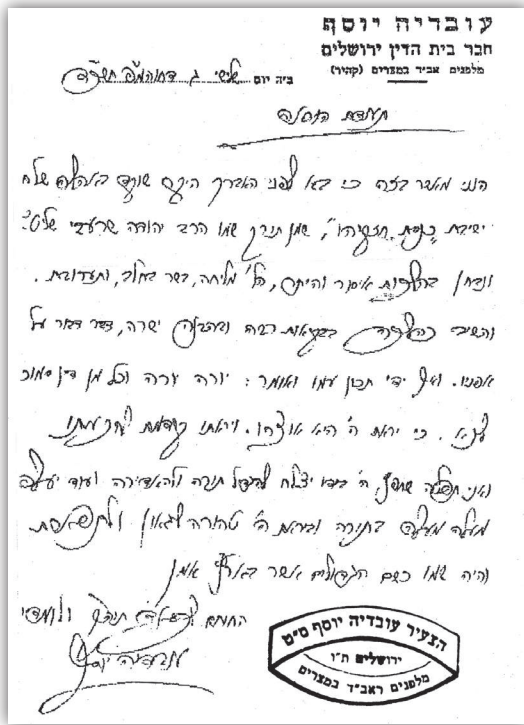 עובדיה יוסף
חבר בית הדין ירושלים
מלפנים אב״ד במצרים (קהיר)
ב״ה יום שלישי ג דחוהמ״פ תש״ד
תעודת הסמכה
הנני מאשר בזה כי בא לפני האברך היקר שוקד באהלה של
ישיבת "כנסת חזקיהו", שמן תורק שמו הרב יהודה שרעבי שליט״א
ונבחן בהלכות איסור והיתר, הל' מליחה, בשר בחלב, ותערובות.
והשיב כהלכה בבקיאות רבה ובהבנה ישרה, דבר דבור על
אפניו. ועל ידי תכון עמו ואומר: יורה יורה וכל מן דין סמוכו
לנא. כי יראת ה' היא אוצרו. ויראתו קודמת לחכמתו
ואני תפלה שחפץ ה' בידו יצלח להגדיל תורה ולהאדירה ועוד יעלה
מעלה מעלה בתורה וביראת ה' טהורה לגאון ולתפארת.
והיה שמו כשם הגדולים אשר בארץ אמן
החותם לכבוד תורה ולומדי
עובדיה יוסף
הצעיר עובדיה יוסף ס״ט
ירושלים ת״ו
מלפנים ראב״ד במצרים